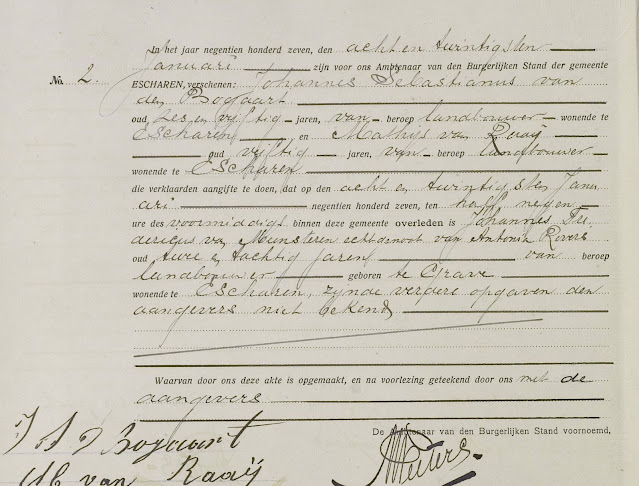 In het jaar negentien honderd zeven, den acht en twintigsten
Januari zijn voor ons Ambtenaar van den Burgerlijken Stand der gemeente
No. 2. ESCHAREN, verschenen: Johannes Sebastianus van
den Bogaart
oud zes en vijftig jaren, van beroep landbouwer wonende te
Escharen en Mathijs van Raaij
oud vijftig jaren, van beroep landbouwer
wonende te Escharen
die verklaarden aangifte te doen, dat op den acht en twintigsten Janu
ari negentien honderd zeven, ten half negen
ure des voormiddags binnen deze gemeente overleden is Johannes Fri
dericus van Munsteren echtgenoot van Antonia Rovers
oud twee en tachtig jaren van beroep
landbouwer geboren te Grave
wonende te Escharen, zijnde verdere opgaven den
aangevers niet bekend
Waarvan door ons deze akte is opgemaakt, en na voorlezing geteekend door ons met de
aangevers
De Ambtenaar van den Burgerlijken Stand voornoemd,
J S v d Bogaart
M van Raaij